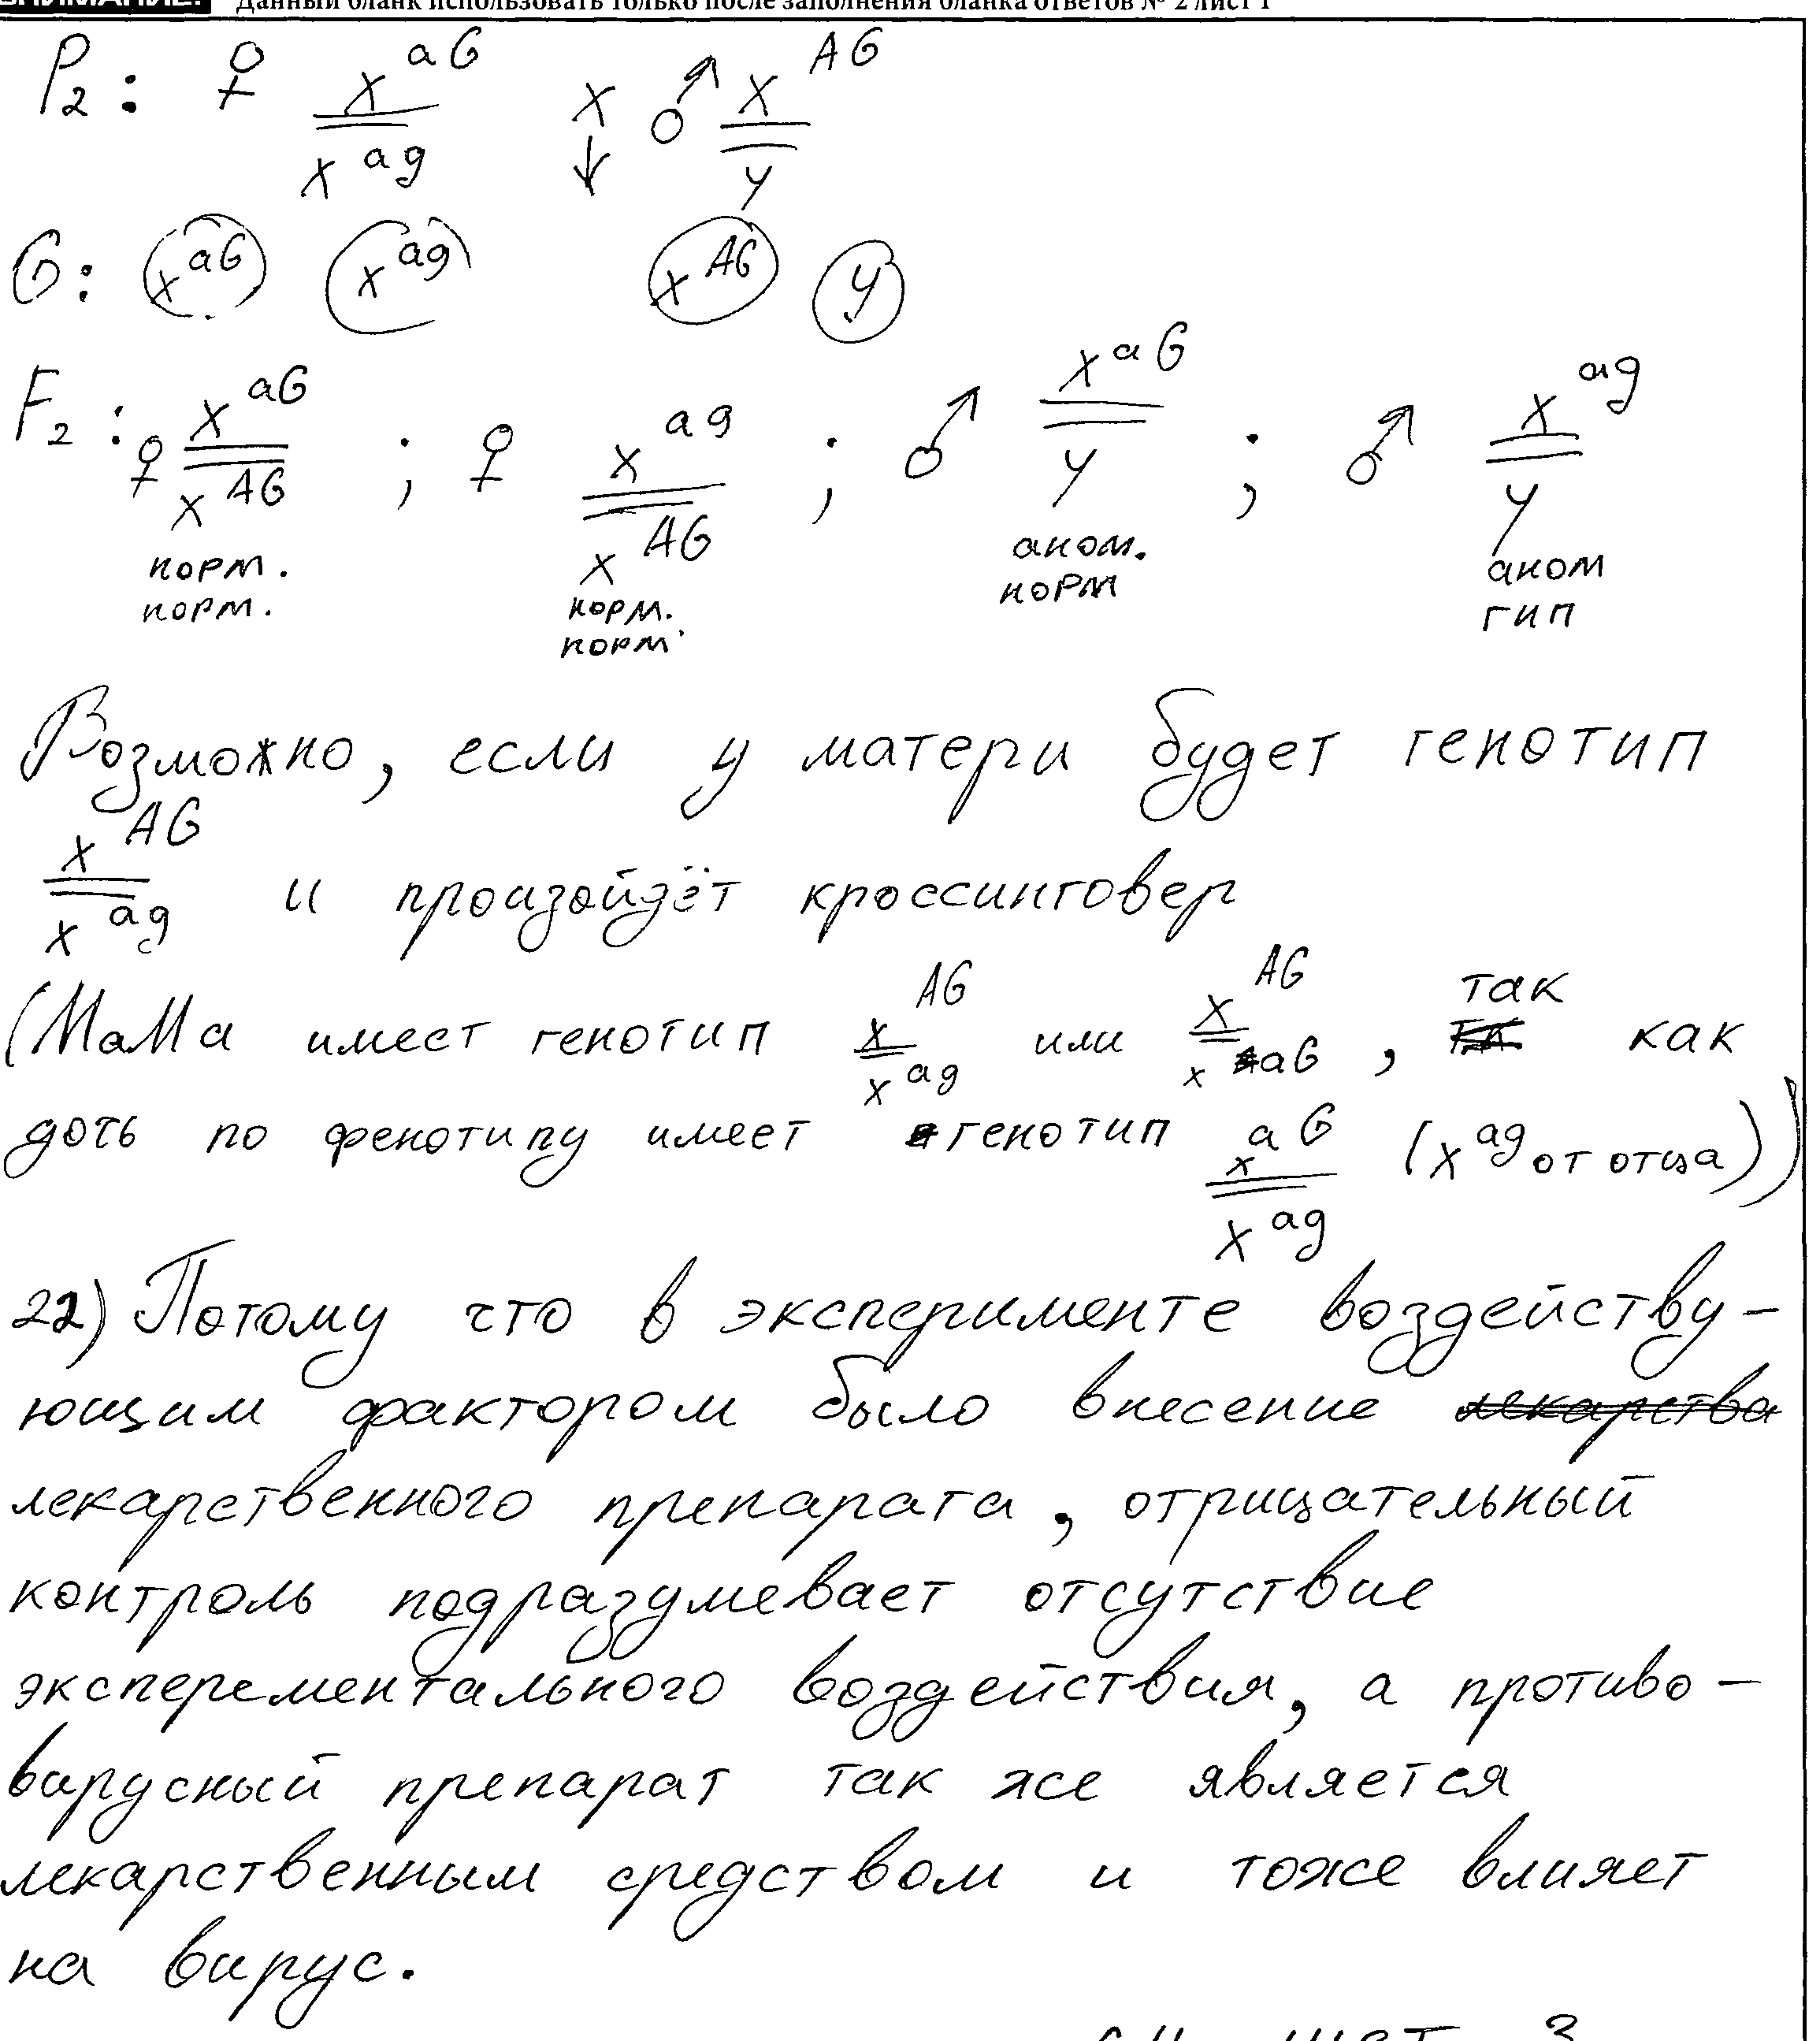 ВНИМАНИЕ! Данный бланк использовать только после заполнения бланка ответов № 2 лист 1
P₂: ♀ X^aG / X^ag x ♂ X^AG / y
↓
G: X^aG X^ag X^AG y
F₂: ♀ X^aG / X^AG ; ♀ X^ag / X^AG ; ♂ X^aG / y ; ♂ X^ag / y
норм. норм. аном. аном
норм. норм. норм гип
Возможно, если у матери будет генотип
X^AG / X^ag и произойдёт кроссинговер
(МаМа имеет генотип X^AG / X^ag или X^AG / X^aG , так как
дочь по фенотипу имеет генотип X^aG / X^ag (X^ag от отца))
22) Потому что в эксперименте воздейству-
ющим фактором было внесение лекарства
лекарственного препарата, отрицательный
контроль подразумевает отсутствие
эксперементального воздействия, а противо-
вирусный препарат так же является
лекарственным средством и тоже влияет
на вирус.